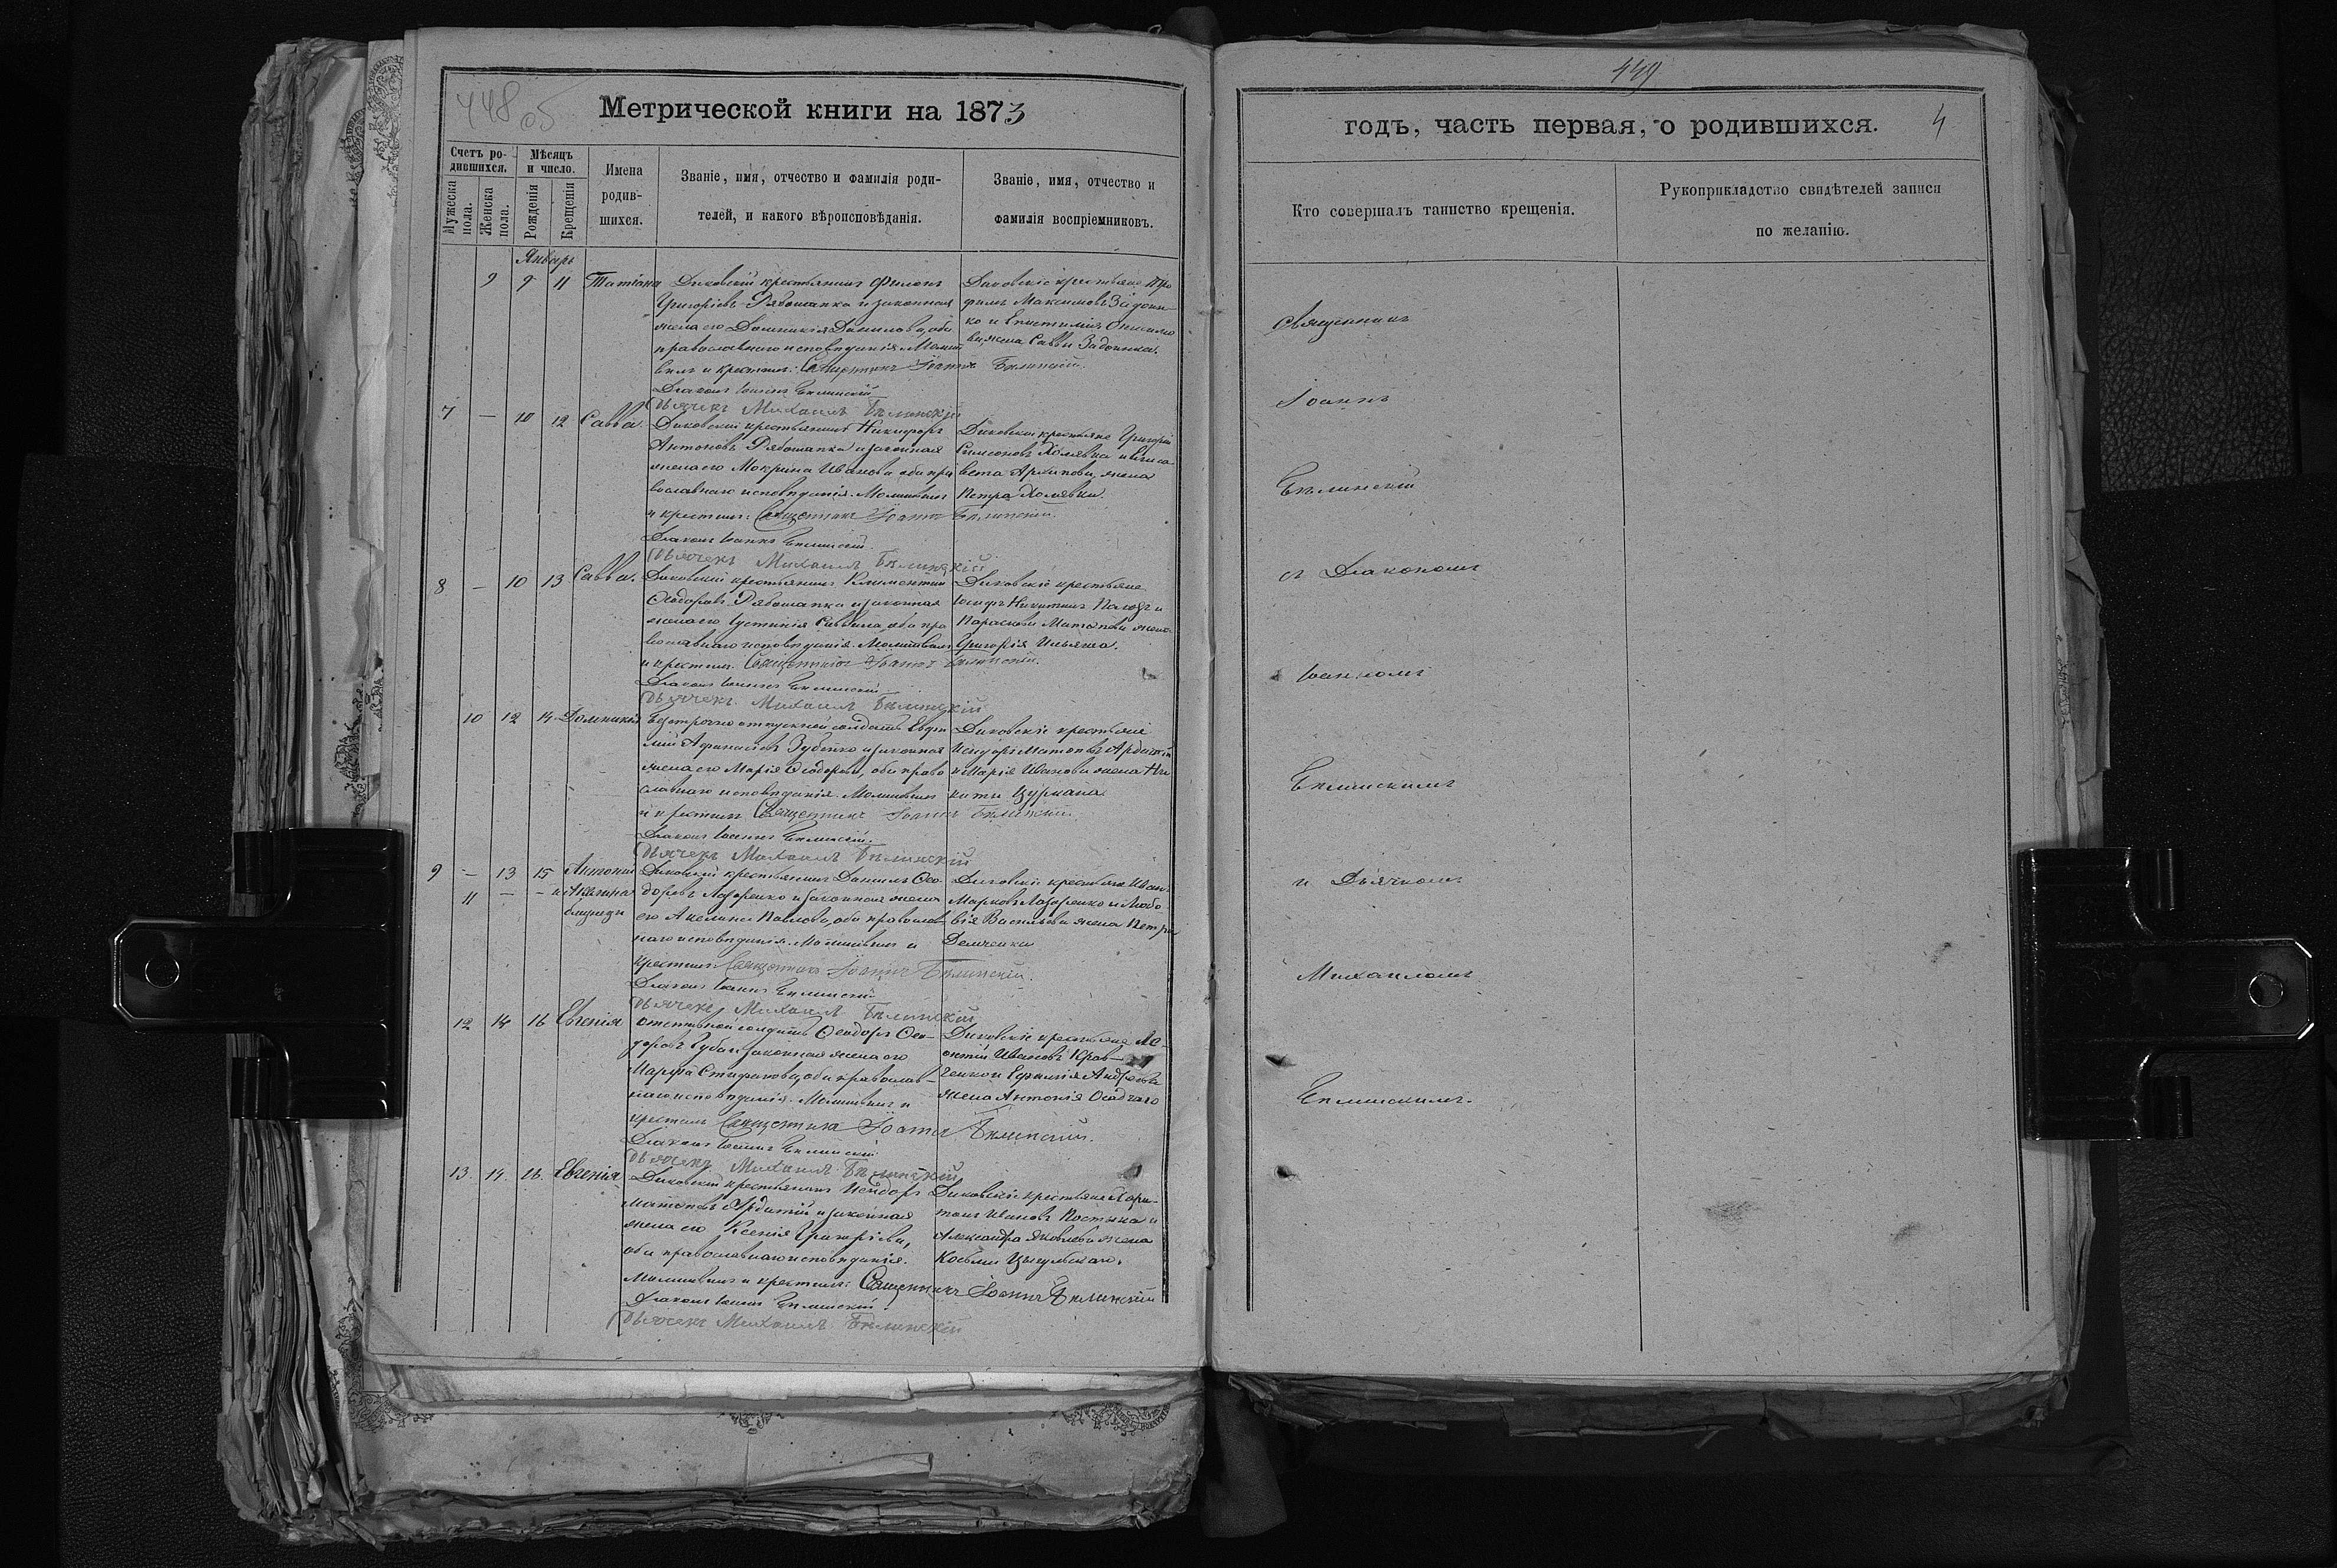 448 об
Метрической книги на 1873
Счетъ ро-
дившихся.
Мѣсяцъ
и число.
Мужеска
пола.
Женска
пола.
Рожденія
Крещенія
Имена
родив-
шихся.
Званіе, имя, отчество и фамилія роди-
телей, и какого вѣроисповѣданія.
Званіе, имя, отчество и
фамилія воспріемниковъ.
Январь
9 9 11 Татіана
Диковскій крестьянинъ Филонъ
Григоріевъ Рябошапка и законная
жена его Домникія Данилова, оба
православнаго исповѣданія. Молит
вилъ и крестилъ: Священникъ Іоаннъ Бѣлинскій.
Діаконъ Іоаннъ Бѣлинскій
Дьячекъ Михаилъ Бѣлинскій
Диковскіе крестьяне Тро
фимъ Максимовъ Задоин
ко и Епистимія Онисимо
ва, жена Саввы Задоинка.
7 — 10 12 Савва.
Диковскій крестьянинъ Никифоръ
Антоновъ Рябошапка и законная
жена его Мокрина Иванова оба пра
вославнаго исповѣданія. Молитвилъ
и крестилъ: Священникъ Іоаннъ Бѣлинскій.
Діаконъ Іоаннъ Бѣлинскій.
Дьячекъ Михаилъ Бѣлинскій
Диковскіе крестьяне Григорій
Симеоновъ Холявка и Елиса
вета Архипова, жена
Петра Холявки.
8 — 10 13 Савва.
Диковскій крестьянинъ Климентій
Ѳеодоровъ Рябошапка и законная
жена его Іустинія Саввина, оба пра
вославнаго исповѣданія. Молитвилъ
и крестилъ. Священникъ Іоаннъ Бѣлинскій.
Діаконъ Іоаннъ Бѣлинскій
Дьячекъ Михаилъ Бѣлинскій
Диковскіе крестьяне
Іосифъ Никитинъ и
Параскева жена
Григорія Ильяша.
10 12 14 Домникія
Безсрочно отпускной солдатъ Евфи
мій Афанасіевъ Зубенко и законная
жена его Марія Ѳеодорова, оба право
славнаго исповѣданія. Молитвилъ
и крестилъ Священникъ Іоаннъ Бѣлинскій
Діаконъ Іоаннъ Бѣлинскій.
Дьячекъ Михаилъ Бѣлинскій
Диковскіе крестьяне
Исидоръ
и Марія Иванова жена Ни
киты Цуркана.
9 — 13 15 Антоній
11 — — и Акилина
близнецы
Диковскій крестьянинъ Даніилъ Ѳео
доровъ Лазаренко и законная жена
его Акилина Павлова, оба православ
наго исповѣданія. Молитвилъ и
крестилъ: Священникъ Іоаннъ Бѣлинскій.
Діаконъ Іоаннъ Бѣлинскій
Дьячекъ Михаилъ Бѣлинскій
Диковскіе крестьяне Иванъ
Марковъ Лазаренко и Любо
вія Васильева жена Петра
Демченка
12 14 16 Евгенія
Отставной солдатъ Ѳеодоръ Ѳео-
доровъ Губа и законная жена его
Марфа Стефанова, оба православ-
наго исповѣданія. Молитвилъ и
крестилъ Священникъ Іоаннъ Бѣлинскій.
Діаконъ Іоаннъ Бѣлинскій
Дьячекъ Михаилъ Бѣлинскій
Диковскіе крестьяне Ле-
онтій Ивановъ Крав-
ченко и Евфимія Андреева
жена Антонія Осадчаго
13. 14. 16. Евгенія
Диковскій крестьянинъ Исидоръ
и законная
жена его Ксенія Григоріева,
оба православнаго исповѣданія.
Молитвилъ и крестилъ: Священникъ Іоаннъ Бѣлинскій
Діаконъ Іоаннъ Бѣлинскій.
Дьячекъ Михаилъ Бѣлинскій
Диковскіе крестьяне Хари-
тонъ Ивановъ и
Александра Яковлева жена
Космы
449
годъ, часть первая, о родившихся.
4
Кто совершалъ таинство крещенія.
Рукоприкладство свидѣтелей записи
по желанію.
Священникъ
Іоаннъ
Бѣлинскій
съ Діакономъ
Іоанномъ
Бѣлинскимъ
и Дьячкомъ
Михаиломъ
Бѣлинскимъ.